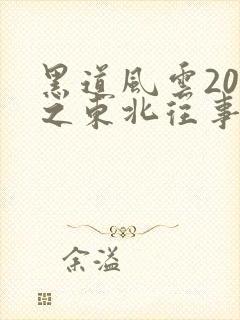 黑道風雲20
之東北往事
余溢